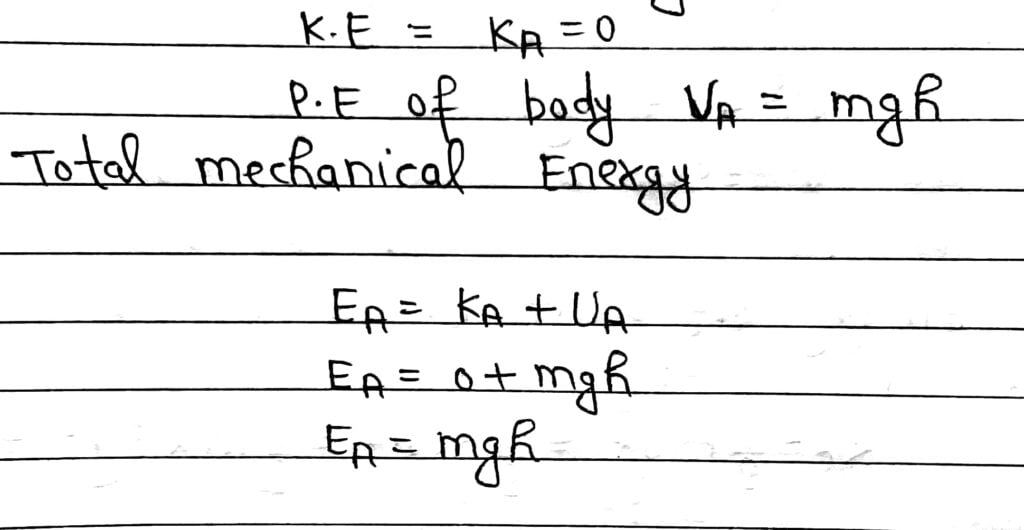 K.E = KA = 0
P.E of body VA = mgh
Total mechanical Energy
EA = KA + UA
EA = 0 + mgh
EA = mgh